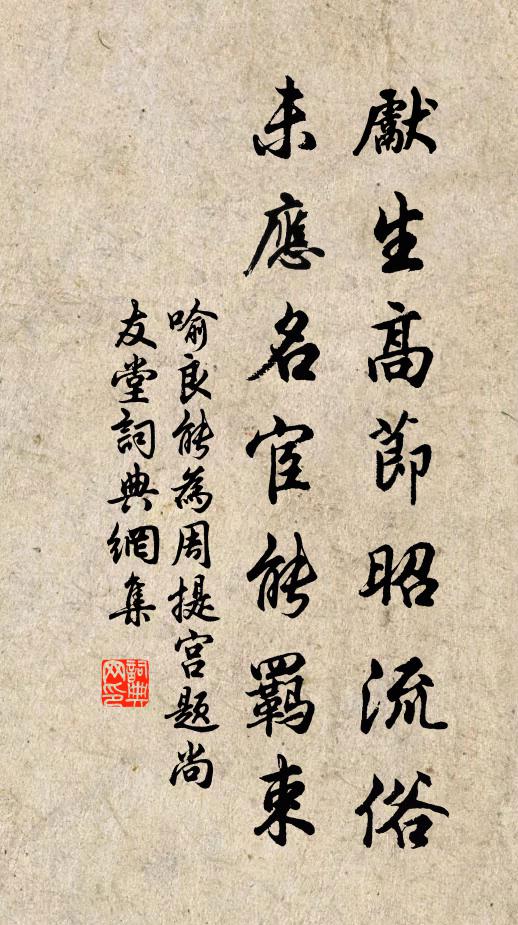 獻生高節昭流俗
未應名宦能羈束
喻良能為周提宮題尚
友堂詞典網集
詞典
网印